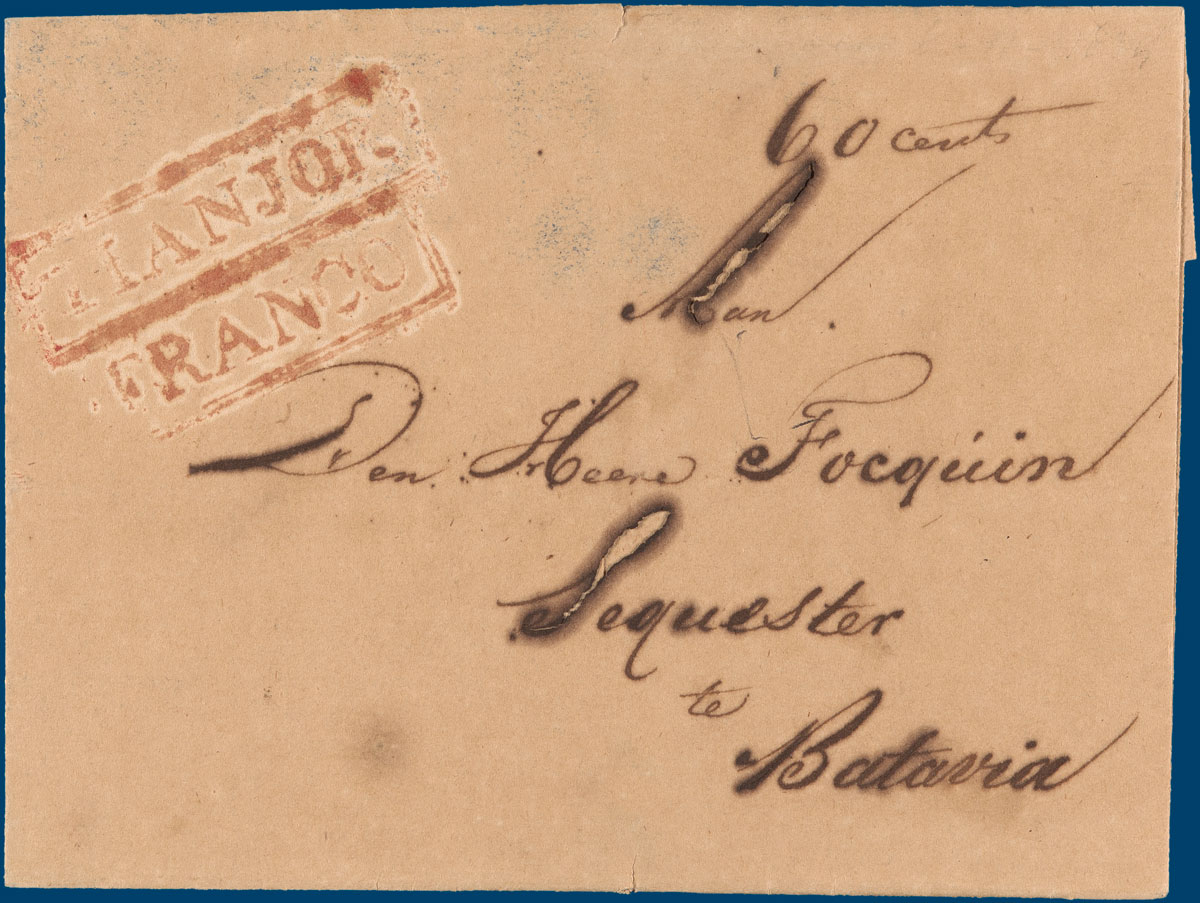 TIANJOR
FRANCO
60 cents
Aan
Den Heere Focquin
Sequester
te
Batavia